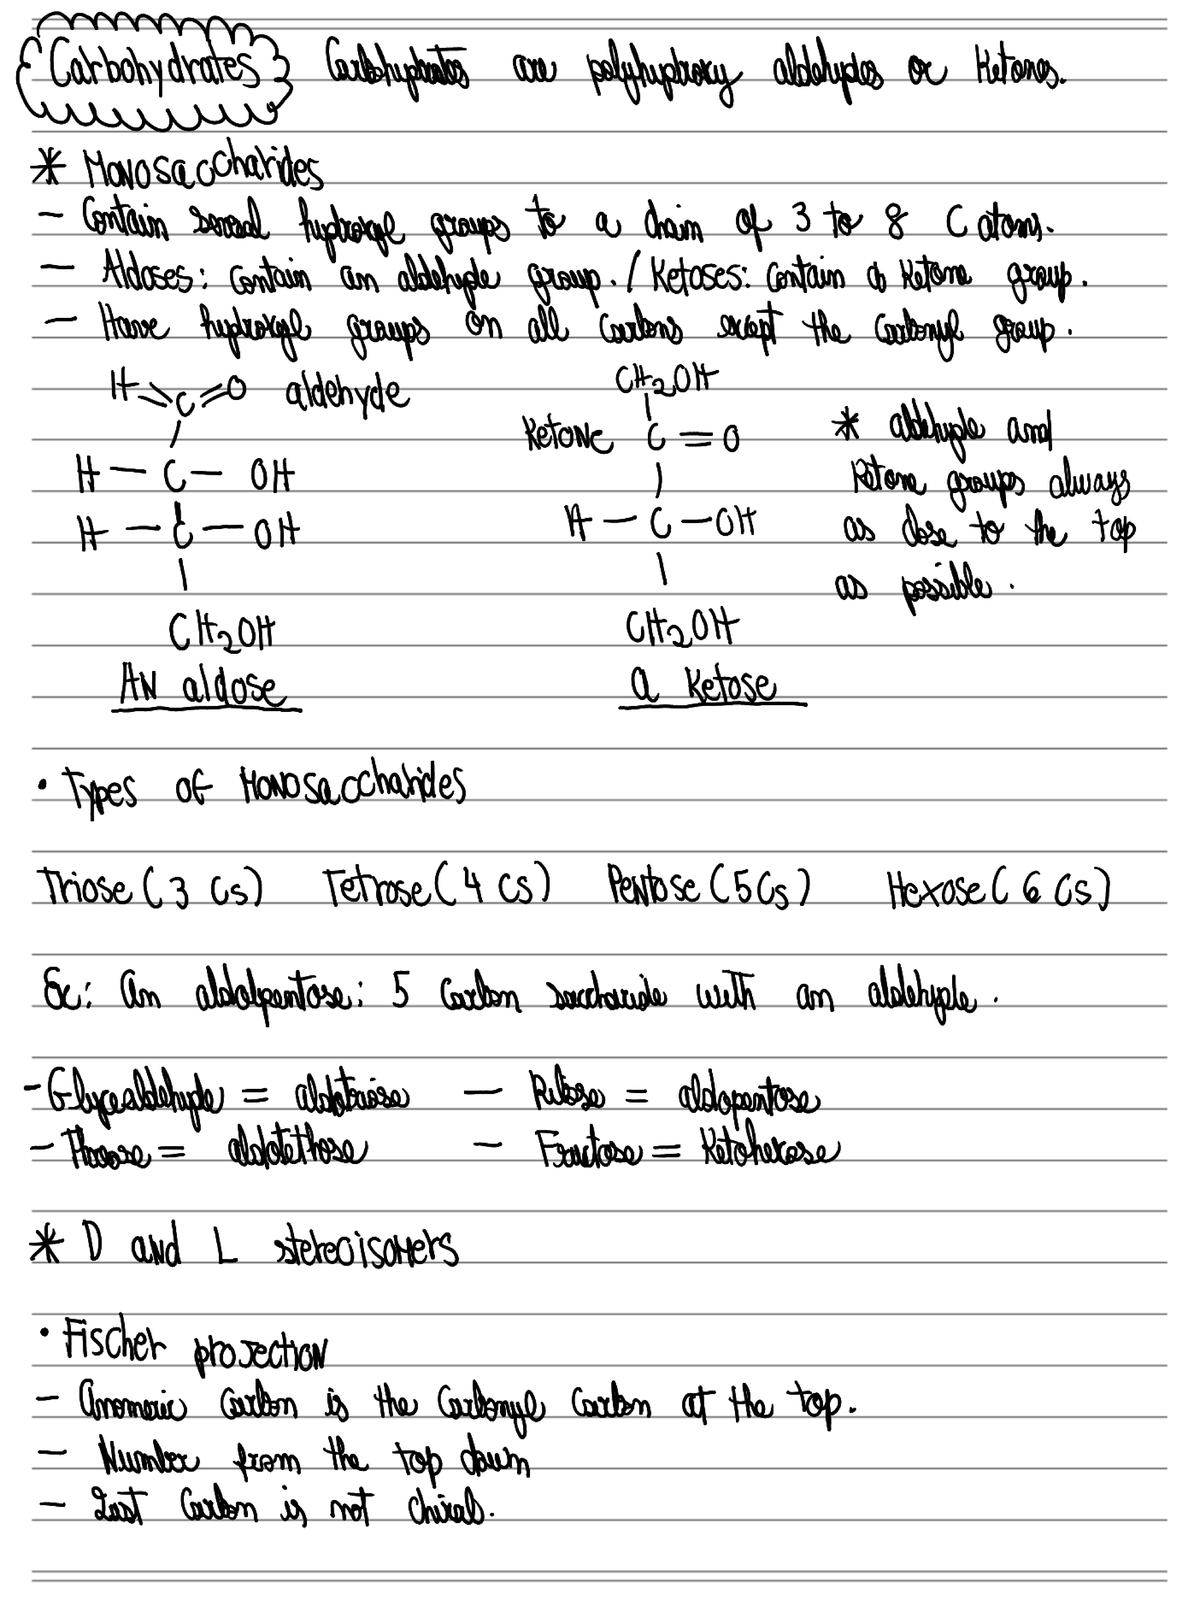 Carbohydrates Carbohydrates are polyhydroxy aldehydes or Ketones.
* Monosaccharides
- Contain several hydroxyl groups to a chain of 3 to 8 C atoms.
- Aldoses: contain an aldehyde group. / Ketoses: contain a Ketone group.
- Have hydroxyl groups on all carbons except the carbonyl group.
H C = O aldehyde
H - C - OH
H - C - OH
CH2OH
An aldose
CH2OH
Ketone C = O
H - C - OH
CH2OH
a Ketose
* aldehyde and
Ketone groups always
as close to the top
as possible.
• Types of Monosaccharides
Triose (3 Cs) Tetrose (4 Cs) Pentose (5 Cs) Hexose (6 Cs)
Ex: An aldopentose: 5 Carbon saccharide with an aldehyde.
- Glyceraldehyde = aldotriose - Ribose = aldopentose
- = - Fructose = Ketohexose
* D and L stereoisomers
• Fischer projection
- Anomeric carbon is the carbonyl carbon at the top.
- Number from the top down
- Last carbon is not chiral.